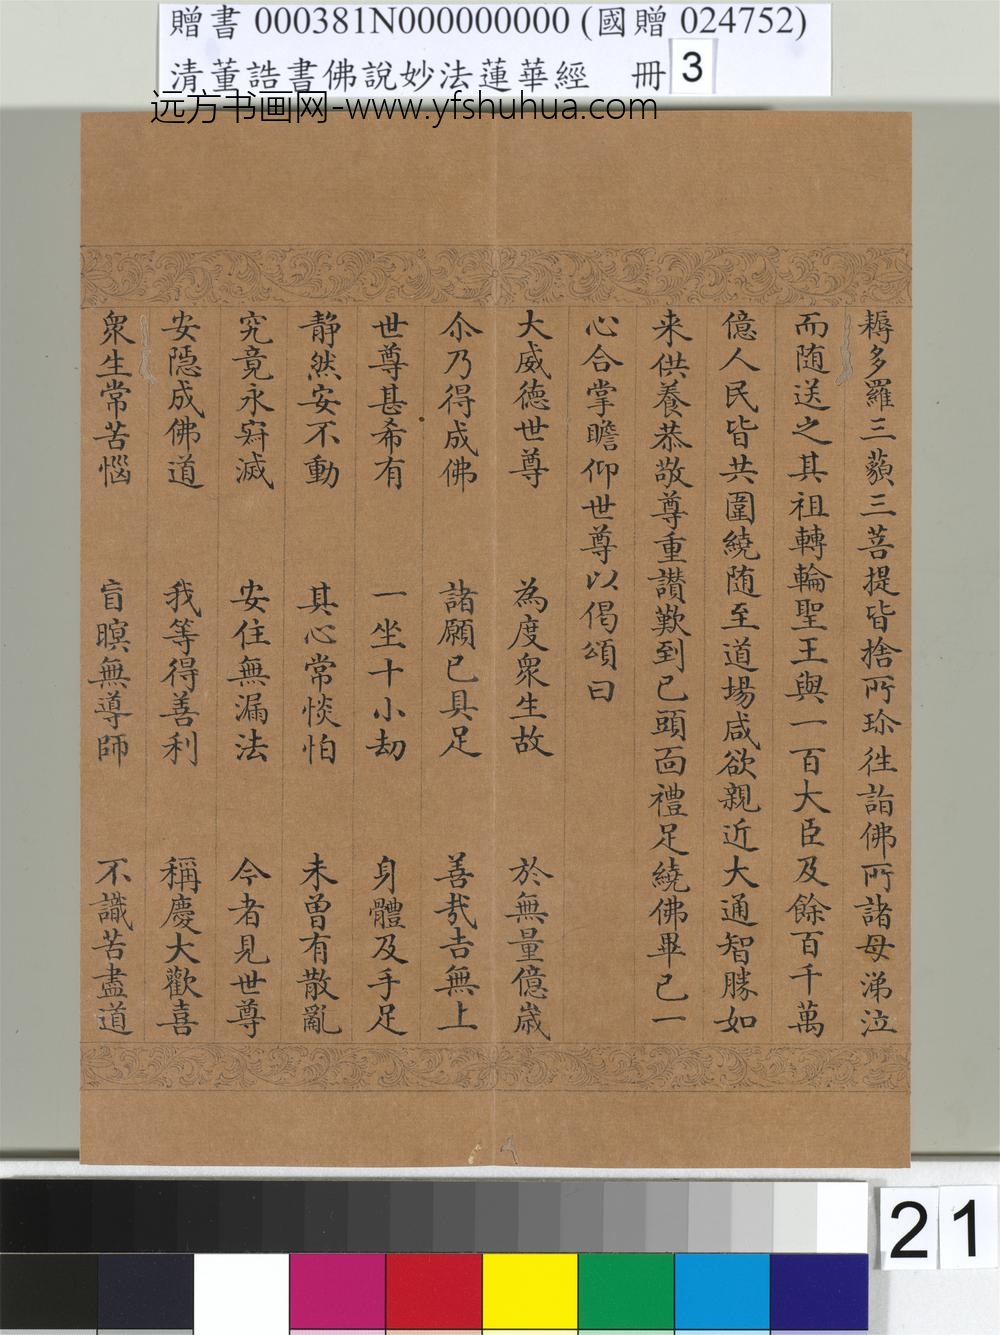 贈書 000381N000000000 (國贈 024752)
清董誥書佛說妙法蓮華經 冊 3
远方书画网-www.yfshuhua.com
耨多羅三藐三菩提皆捨所珍徃詣佛所諸母涕泣
而随送之其祖轉輪聖王與一百大臣及餘百千萬
億人民皆共圍繞随至道場咸欲親近大通智勝如
来供養恭敬尊重讃歎到已頭面禮足繞佛畢已一
心合掌瞻仰世尊以偈頌曰
大威德世尊 為度衆生故 於無量億歲
尒乃得成佛 諸願已具足 善㦲吉無上
世尊甚希有 一坐十小劫 身體及手足
静然安不動 其心常惔怕 未曾有散亂
究竟永寂滅 安住無漏法 今者見世尊
安隱成佛道 我等得善利 稱慶大歡喜
衆生常苦惱 盲暝無導師 不識苦盡道
21